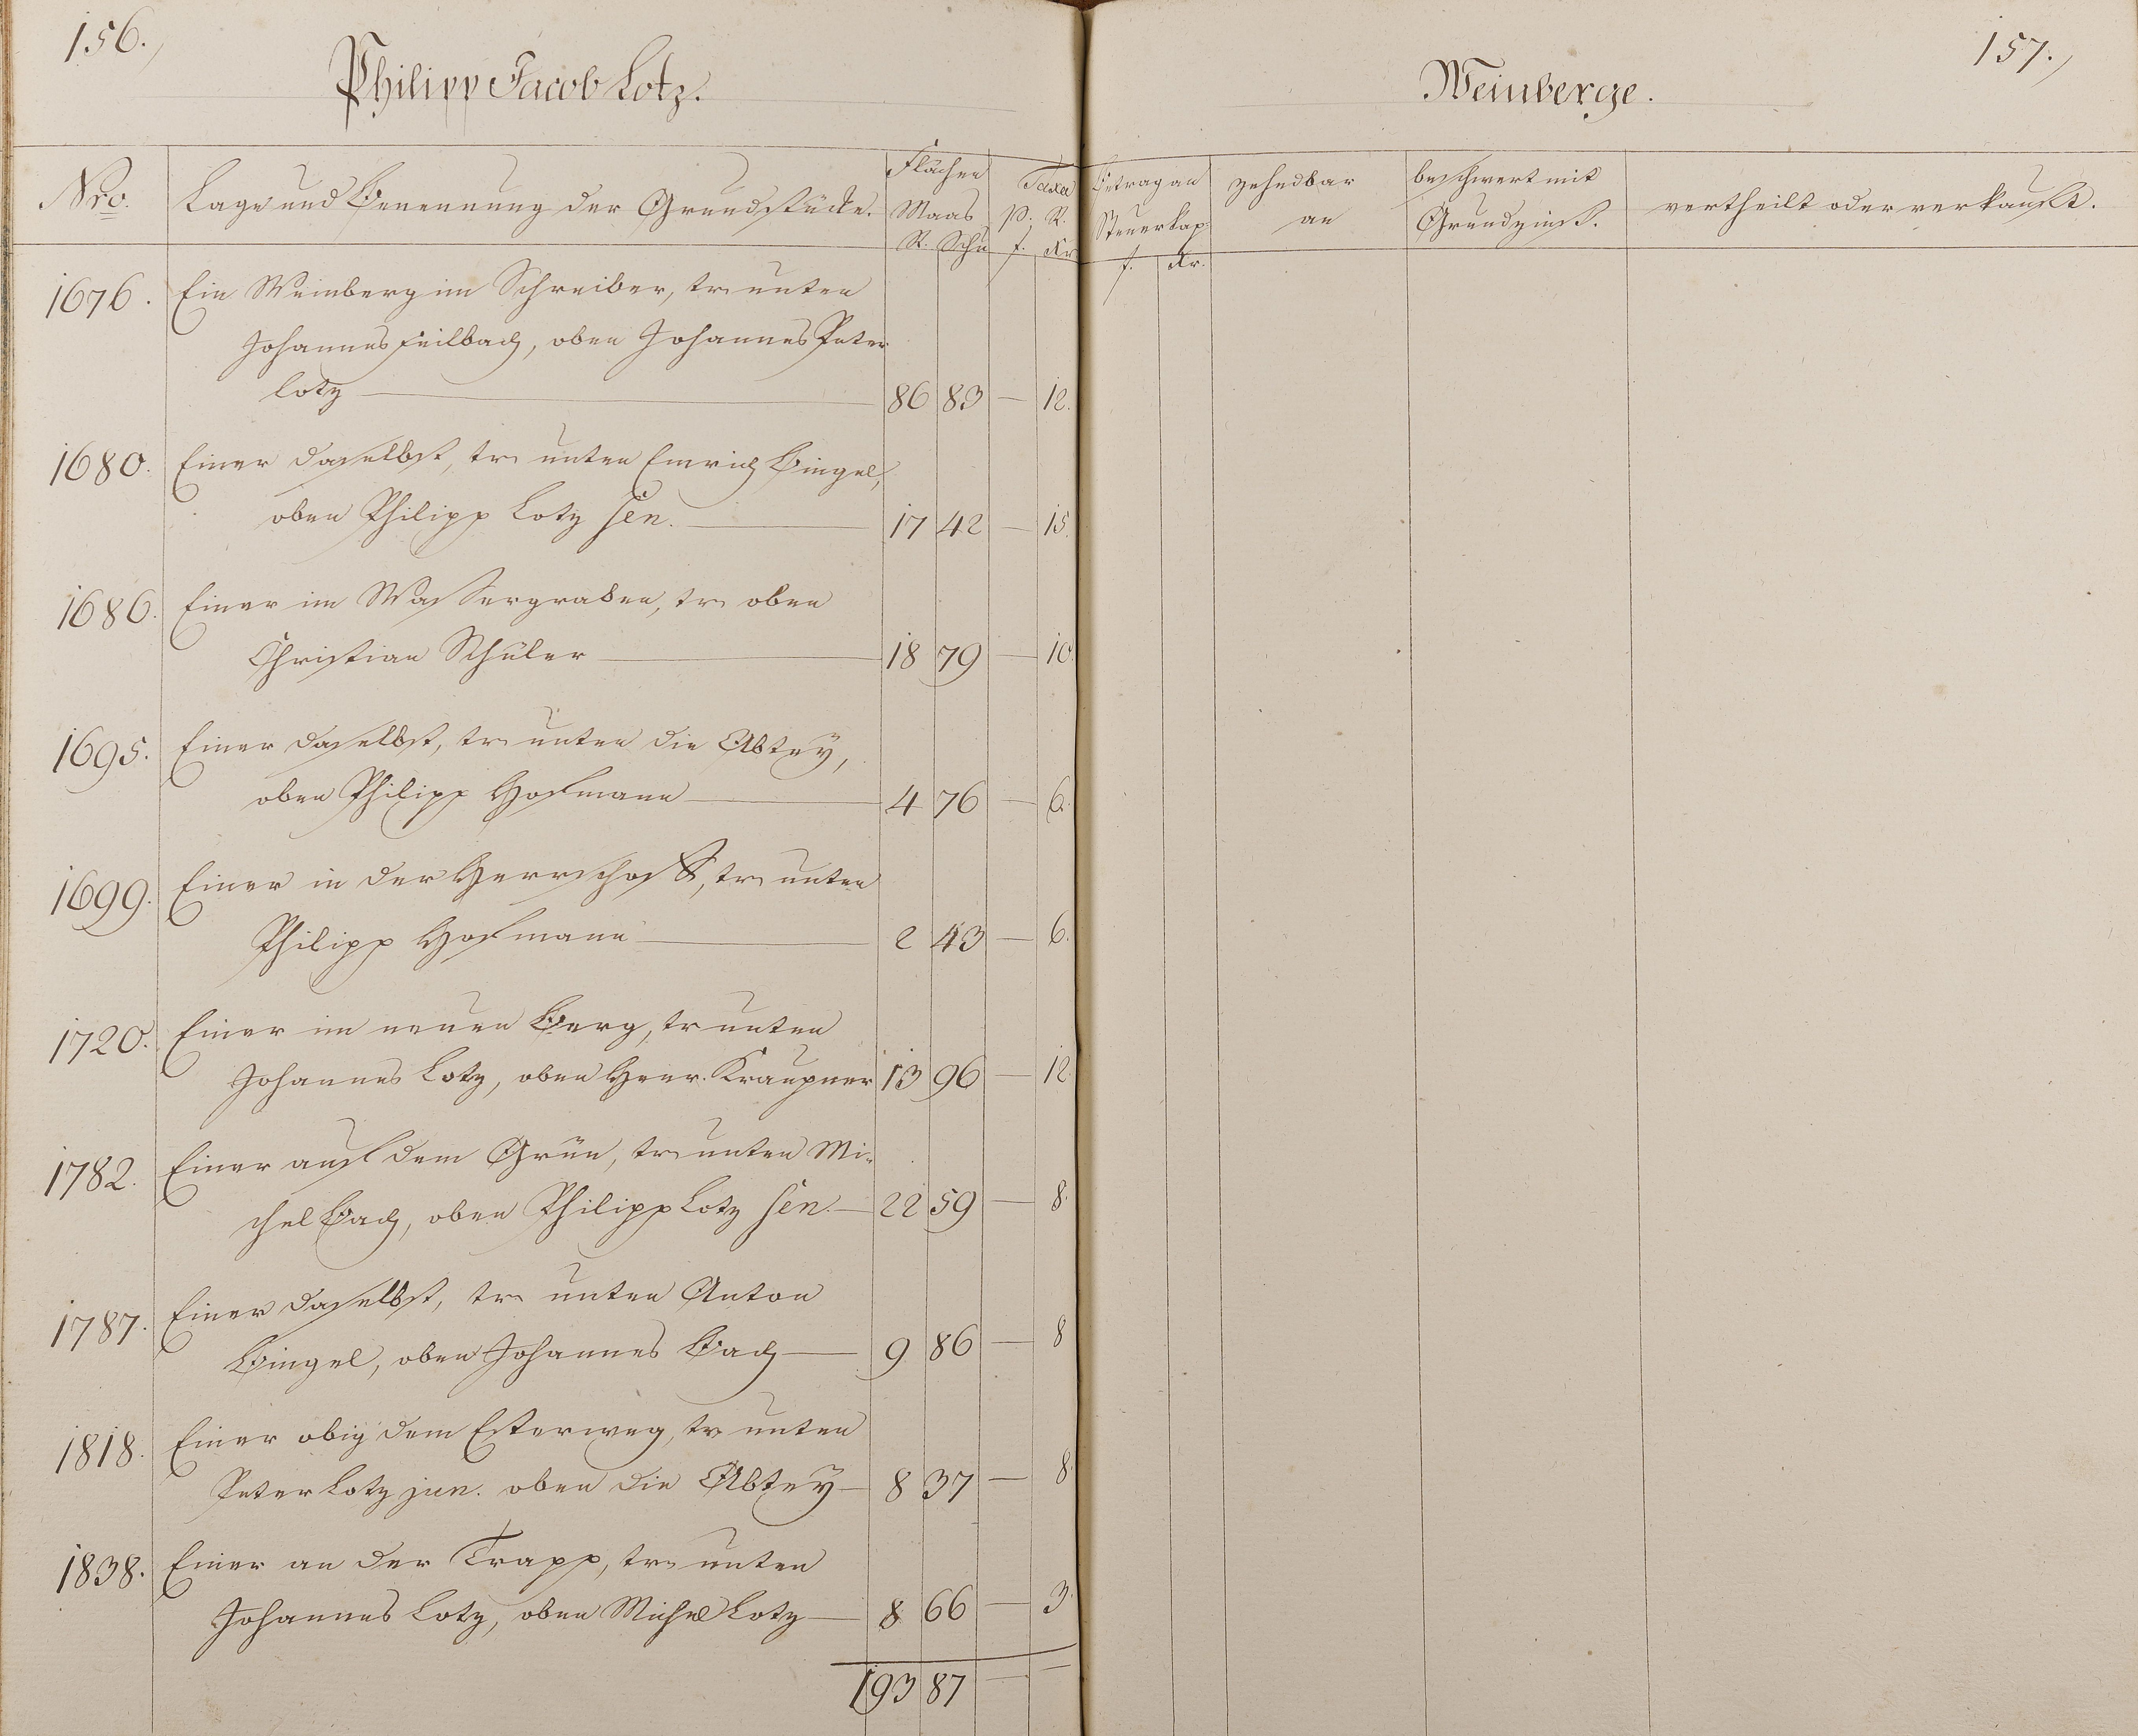 156.
Philipp Jacob Lotz.
Nro.
Lage und Benennung der Grundstücke.
Flächen
Maas
R. Schu
Taxa
p. R.
f. Kr
1676. Ein Weinberg im Schreiber, tr. unten
Johannes Feilbach, oben Johannes Peter
Lotz — 86 83 — 12.
1680. Einer daselbst, tr. unten Emrich Bingel,
oben Philipp Lotz sen. — 17 42 — 15.
1686. Einer im Wassergraben, tr. oben
Christian Schüler — 18 79 — 10
1695. Einer daselbst, tr. unten die Abtey,
oben Philipp Hofmann — 4 76 — 6.
1699. Einer in der Herrschaft, tr. unten
Philipp Hofmann — 2 43 — 6.
1720. Einer im neuen Berg, tr unten
Johannes Lotz, oben Henr. Kraupner 13 96 — 12.
1782. Einer auf dem Grün, tr. unten Mi-
chel Bach, oben Philipp Lotz sen. — 22 59 — 8.
1787. Einer daselbst, tr. unten Anton
Bingel, oben Johannes Bach — 9 86 — 8
1818. Einer obig dem Esterweg, tr. unten
Peter Lotz jun. oben die Abtey — 8 37 — 8.
1838. Einer an der Trapp, tr. unten
Johannes Lotz, oben Michel Lotz — 8 66 — 3.
193 87 — —
157.
Weinberge.
Betrag an
Steuerkap:
f. Kr.
zehedbar
an
beschwert mit
Grundzinß.
vertheilt oder verkauft.